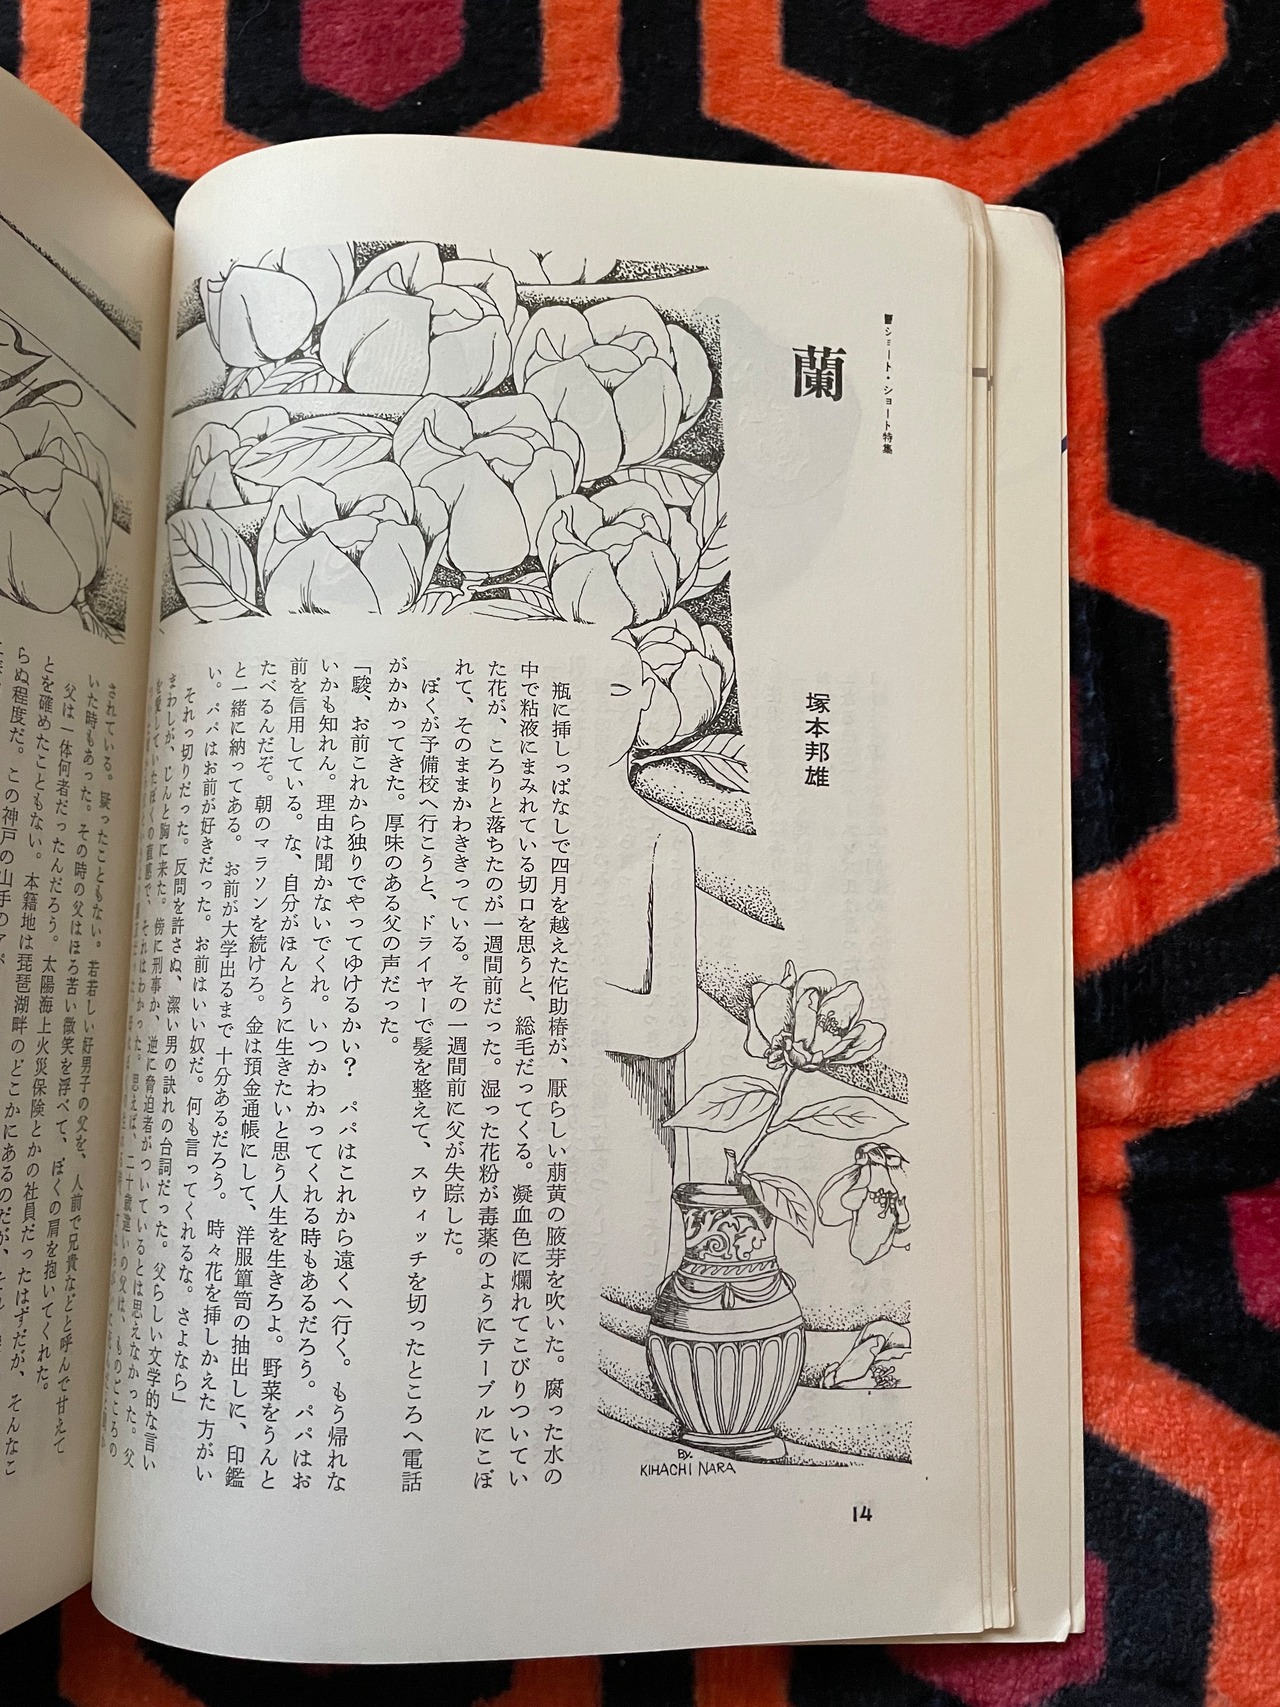 ショート・ショート特集
蘭
塚本邦雄
瓶に挿しっぱなしで四月を越えた侘助椿が、厭らしい萠黄の腋芽を吹いた。腐った水の
中で粘液にまみれている切口を思うと、総毛だってくる。凝血色に爛れてこびりついてい
た花が、ころりと落ちたのが一週間前だった。湿った花粉が毒薬のようにテーブルにこぼ
れて、そのままかわききっている。その一週間前に父が失踪した。
ぼくが予備校へ行こうと、ドライヤーで髪を整えて、スウィッチを切ったところへ電話
がかかってきた。厚味のある父の声だった。
「駿、お前これから独りでやってゆけるかい？　パパはこれから遠くへ行く。もう帰れな
いかも知れん。理由は聞かないでくれ。いつかわかってくれる時もあるだろう。パパはお
前を信用している。な、自分がほんとうに生きたいと思う人生を生きろよ。野菜をうんと
たべるんだぞ。朝のマラソンを続けろ。金は預金通帳にして、洋服簞笥の抽出しに、印鑑
と一緒に納ってある。お前が大学出るまで十分あるだろう。時々花を挿しかえた方がい
い。パパはお前が好きだった。お前はいい奴だ。何も言ってくれるな。さよなら」
それっ切りだった。反問を許さぬ、潔い男の訣れの台詞だった。父らしい文学的な言い
まわしが、じんと胸に来た。傍に刑事か、逆に脅迫者がついているとは思えなかった。父
を愛していたぼくの直感で、それはわかった。思えば、二十歳違いの父は、ものどころの
されている。疑ったこともない。若若しい好男子の父を、人前で兄貴などと呼んで甘えて
いた時もあった。その時の父はほろ苦い微笑を浮べて、ぼくの肩を抱いてくれた。
父は一体何者だったんだろう。太陽海上火災保険とかの社員だったはずだが、そんなこ
とを確めたこともない。本籍地は琵琶湖畔のどこかにあるのだが、
らぬ程度だ。この神戸の山手のアパ
BY.
KIHACHI NARA
14